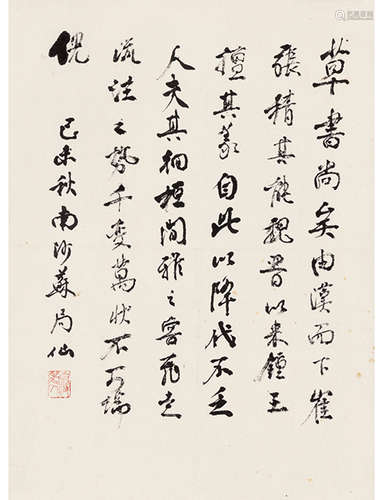 草書尚矣由漢而下崔
張精其能魏晉以來鍾王
擅其家自此以降代不乏
人夫其徊桓閒雅之容飛走
流注之勢千變萬狀不可端
倪
己未秋南沙蘇局仙